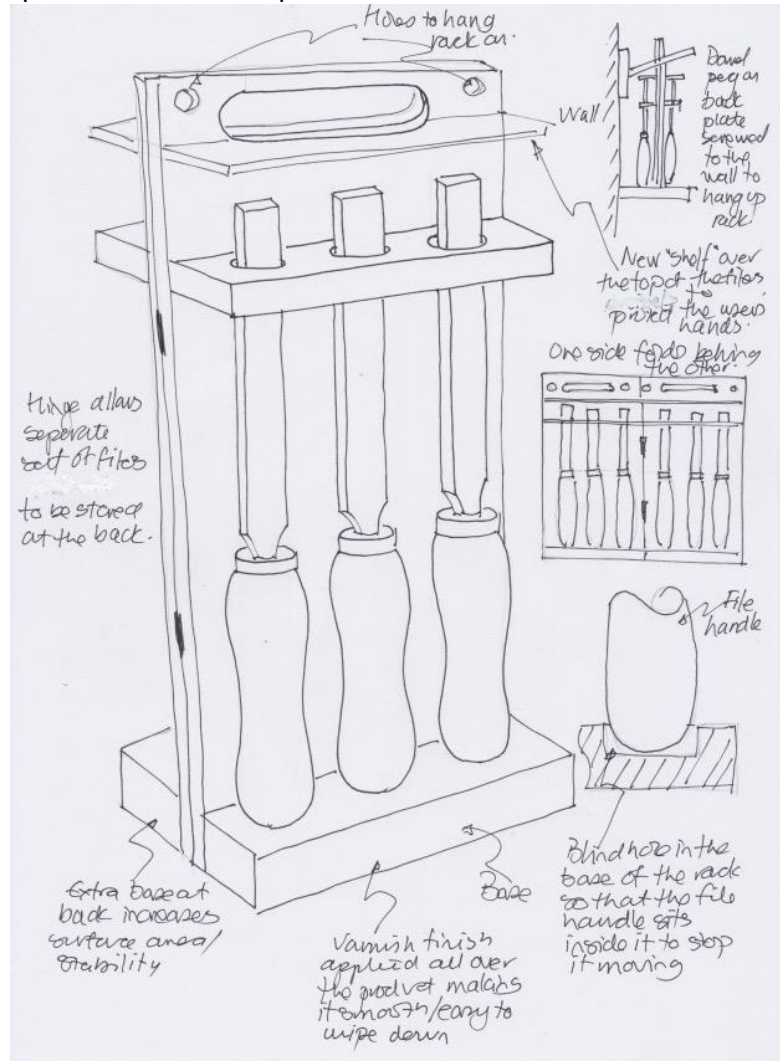 Holes to hang
rack on.
Wall
Dowel
peg on
back
plate
screwed
to the
wall to
hang up
rack.
New "shelf" over
the top of the files
to
protect the users
hands.
One side folds behing
the other.
Hinge allows
seperate
set of files
to be stored
at the back.
File
handle
Extra Base at
back increases
surface area/
stability
Varnish finish
applied all over
the product making
it smooth/easy to
wipe down
Base
Blind hole in the
base of the rack
so that the file
handle sits
inside it to stop
it moving